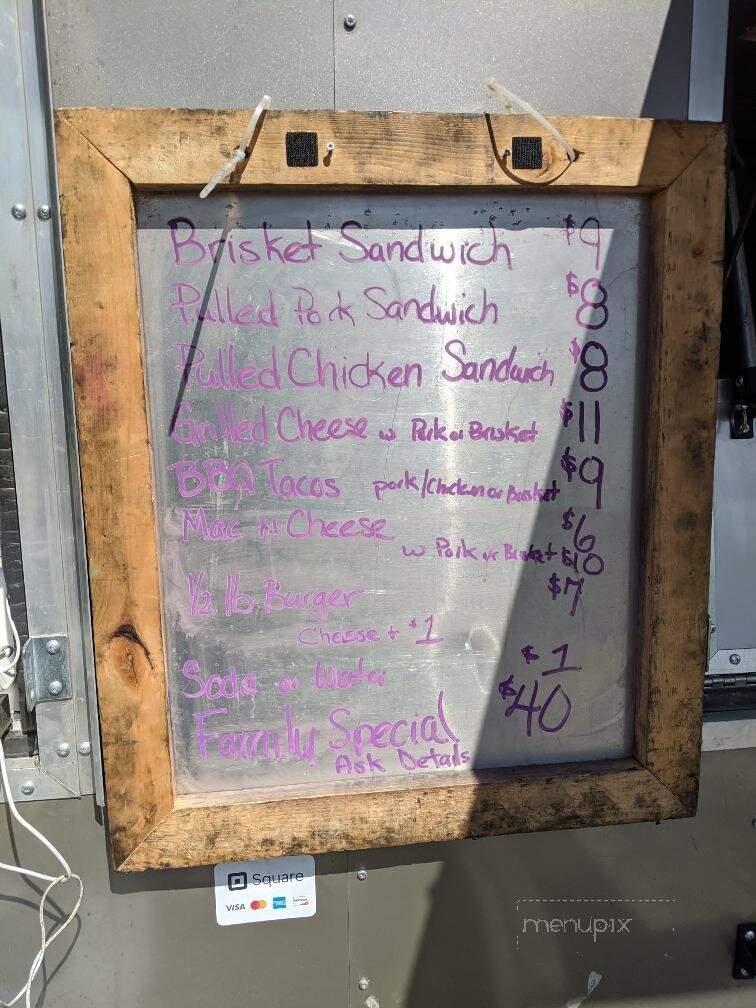 Brisket Sandwich $9
Pulled Pork Sandwich $8
Pulled Chicken Sandwich $8
Grilled Cheese w Pork or Brisket $11
BBQ Tacos pork/chicken or Brisket $9
Mac N Cheese $6
w Pork or Brisket $10
1/2 lb Burger $7
Cheese + $1
Soda or Water $1
Family Special $40
Ask Details
Square
VISA
menupix